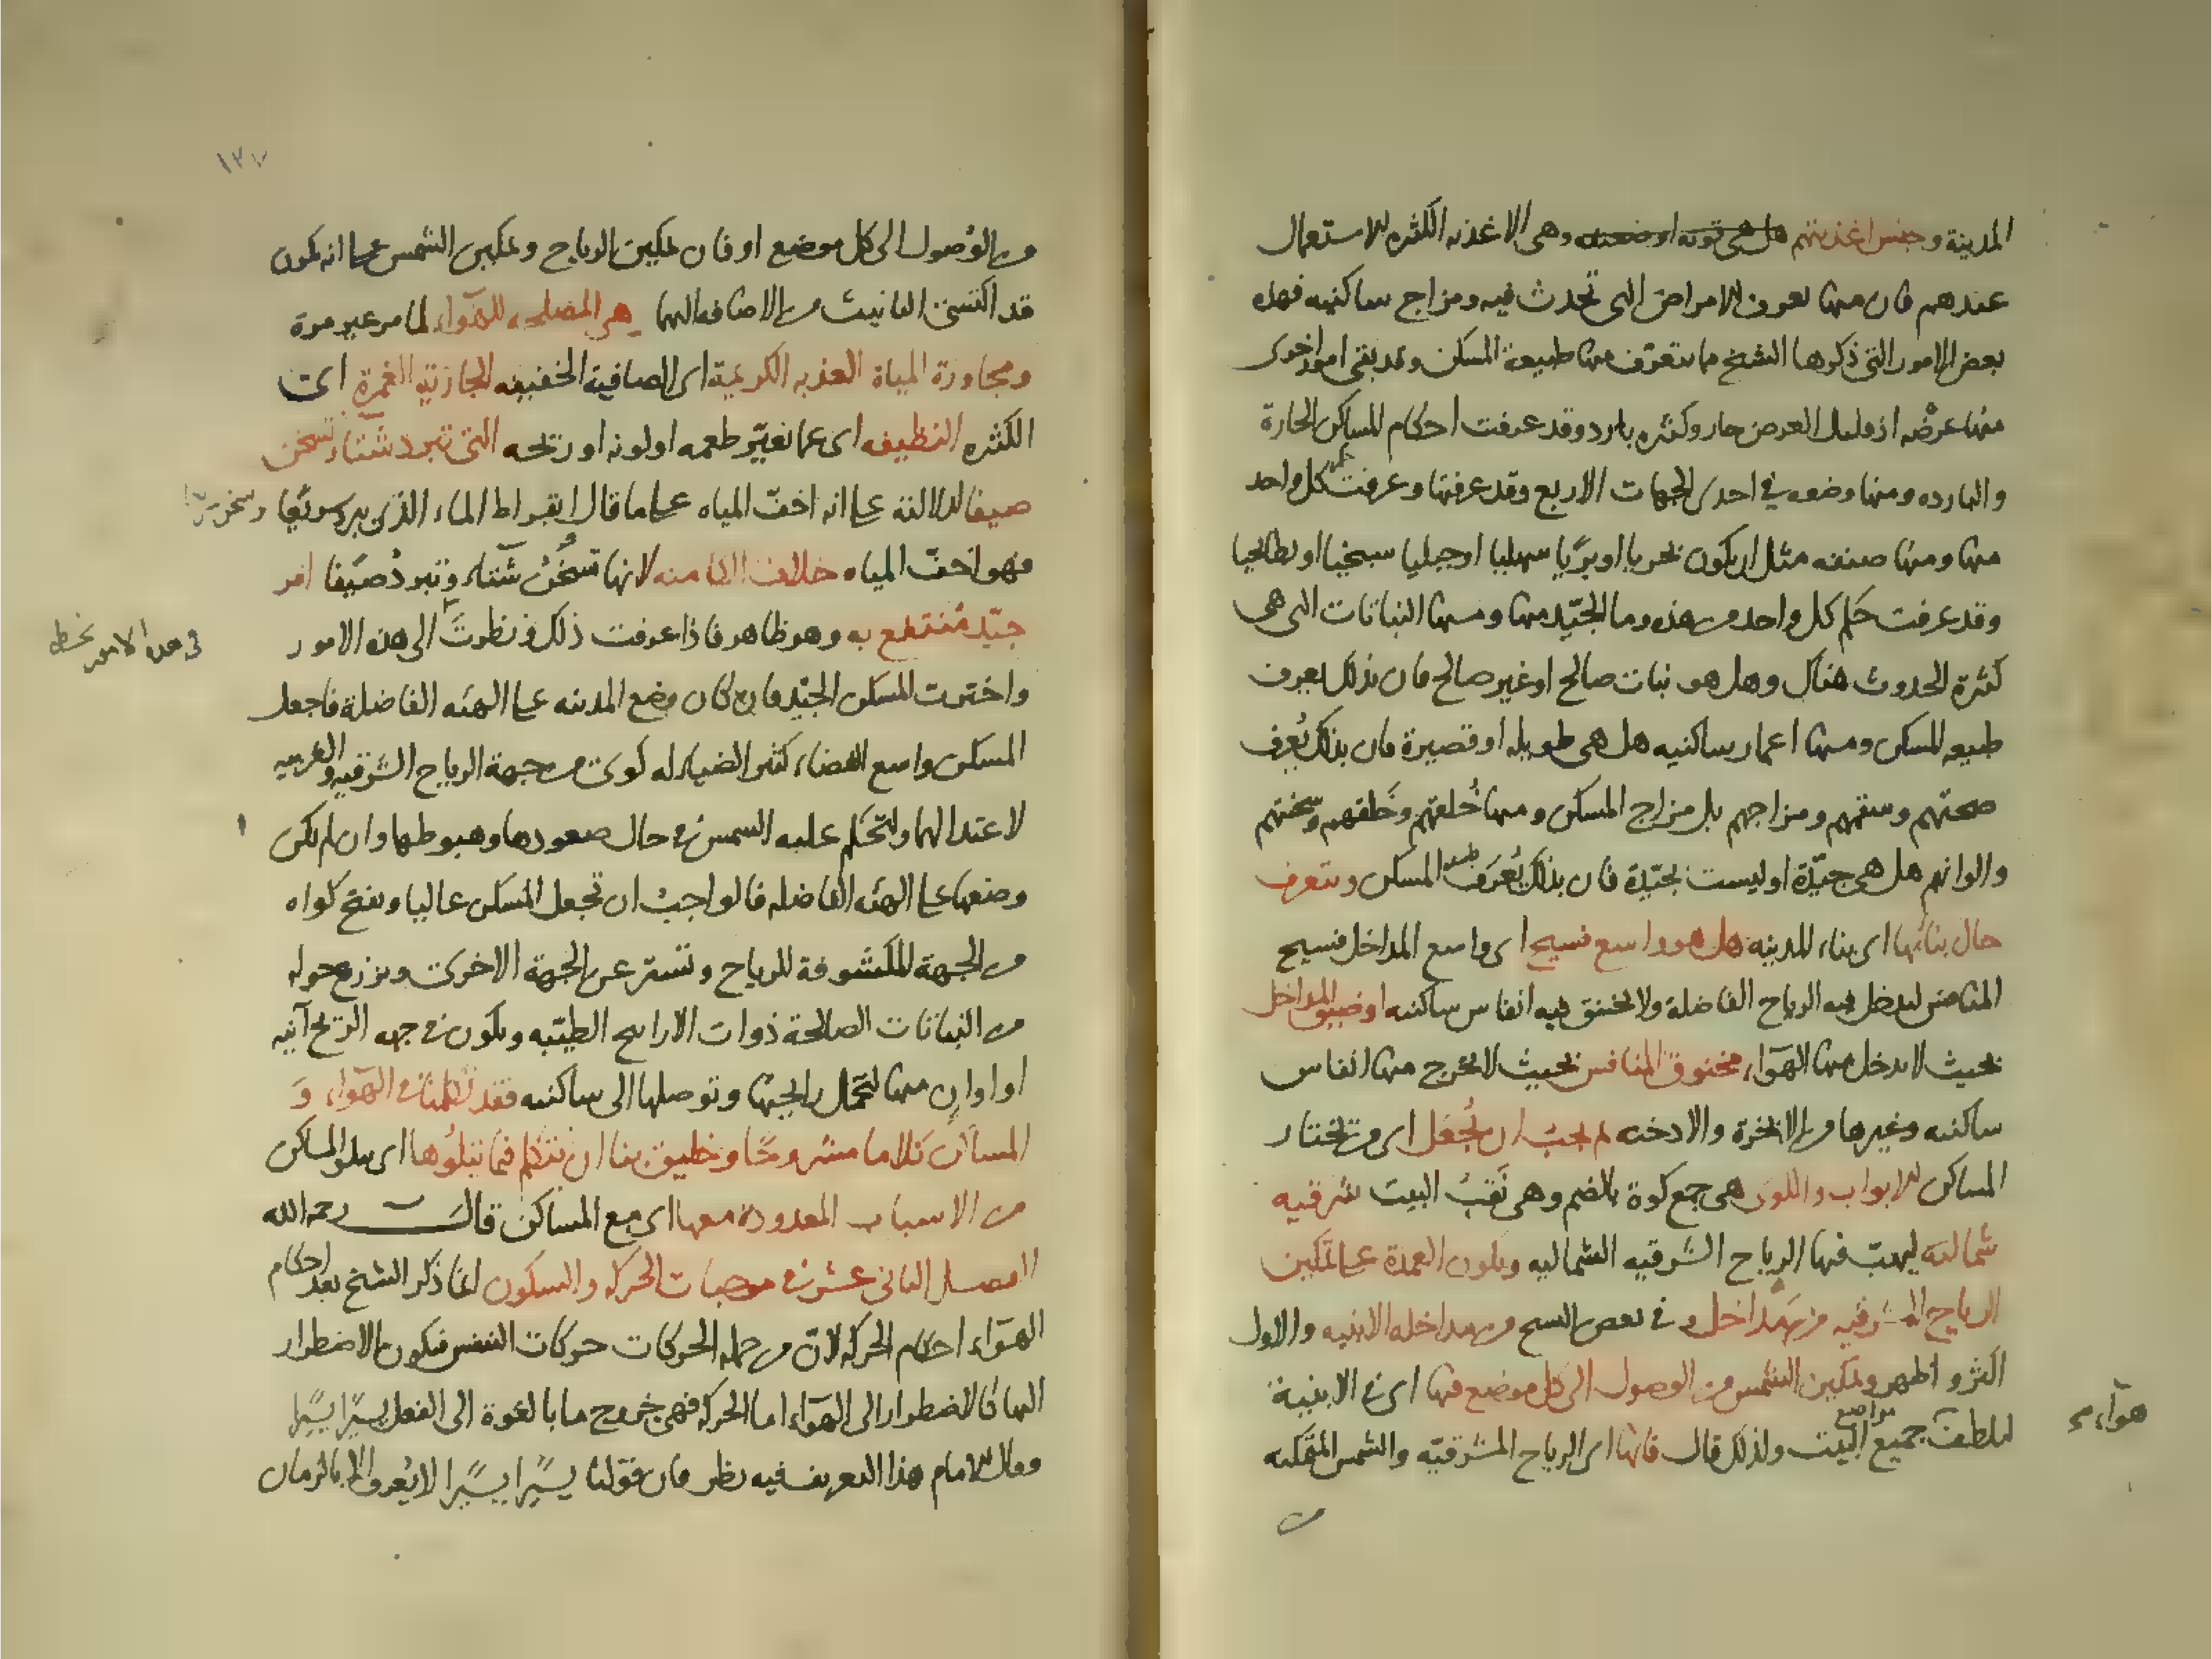 المدينة وجنس اغذيتهم هل هي قوية او ضعيفة وهي الاغذية الكثيرة الاستعمال
عندهم فان منها تعرف الامراض التي تحدث فيه ومزاج ساكنيه فهذه
بعض الامور التي ذكرها الشيخ مما يتعرف منها طبيعة المسكن وقد بقي امور اخرى
منها عرضه اذ قليل العرض حار وكثيره بارد وقد عرفت احكام المساكن الحارة
والباردة ومنها وضعه في احدى الجهات الاربع وقد عرفتها وعرفت كل واحد
منها ومنها صنفه مثل ان يكون بحريا او بريا سهليا او جبليا سبخيا او بطائحيا
وقد عرفت حكم كل واحد من هذه وما الجيد منها ومنها النباتات التي هي
كثيرة الحدوث هناك وهل هو نبات صالح او غير صالح فان بذلك يعرف
طبيعة المسكن ومنها اعمار ساكنيه هل هي طويلة او قصيرة فان بذلك يُعرف
صحتهم وسقمهم ومزاجهم بل مزاج المسكن ومنها خُلقهم وخَلقهم وسحنتهم
والوانهم هل هي جيّدة او ليست بجيّدة فان بذلك يُعرَف المسكن ويتعرف
حال بنائها اي بناء المدينه هل هو واسع فسيح اي واسع المداخل فسيح
المنافس ليدخل فيه الرياح الفاضلة ولا يختنق فيه انفاس ساكنيه او ضيق المداخل
بحيث لا يدخل منها الهوآء مخنوق المنافس بحيث لا يخرج منها انفاس
ساكنيه وغيرها من الابخرة والادخنه ثم يجب ان يُجعل اي من تختار
المساكن الابواب والكوى هي جمع كوة بالضم وهي نَقبُ البيت شرقيه
شماليه ليهبّ فيها الرياح الشرقيه الشماليه ويكون العمدة على تمكين
الرياح المشرقيه من مداخل وفي بعض النسخ من مداخلة الابنيه والاول
اكثر واظهر وتمكين الشمس من الوصول الى كل موضع فيها اي في الابنية
ليلطف جميع مواضع البيت ولذلك قال فانها اي الرياح المشرقيّه والشمس المتمكنه
هوآء
من
١٣٧
من الوُصول الى كل موضع او فان تمكين الرياح وتمكين الشمس على انه يكون
قد اكتسى التانيث من الاضافة اليها هي المصلحه للهوآء لما مر غير مرة
ومجاورة المياة العذبه الكريمة اي الصافية الخفيفه الجارية الغمرة اي
الكثيره النظيفه اي عما يغيّر طعمه او لونه او رئحه التي تبرد شتاء وتسخن
صيفا لدلالته على انه اخفّ المياه على ما قال ابقراط الماء الذي يبرد سريعًا ويسخن سريعا
فهو اخفّ المياه خلاف الكامنه لانها تسخُن شتاء وتبردُ صيفا امر
جيّد مُنتفع به وهو ظاهر فاذا عرفت ذلك ونظرتَ الى هذه الامور
في هذه الامور بخطه
واخترت المسكن الجيّد فان كان وضع المدينه على الهيئه الفاضلة فاجعل
المسكن واسع الفضاء كثير الضياء له كوى من جهة الرياح الشرقيه والغربيه
لاعتدالهما ولتحكم عليه الشمس في حال صعودها وهبوطها وان لم يكن
وضعها على الهيئه الفاضله فالواجب ان تجعل المسكن عاليا وتفتح كواه
من الجهة المكشوفة للرياح وتستر عن الجهة الاخرى ويزرع حوله
من النباتات الصالحة ذوات الارايح الطيّبه ويكون في جهه الريح آنيه
او اوانٍ منها لتحمل رايحتها وتوصلها الى ساكنيه فقد تكلمنا في الهوآء وَ
المساكن كلاما مشروحًا وخليق بنا ان نتكلم فيما يتلُوها اي يتلو المساكن
من الاسباب المعدودة معها اي مع المساكن قال رحمه الله
الفصل الثاني عشر في موجبات الحركه والسكون انما ذكر الشيخ بعد احكام
الهوآء احكام الحركه لانّ من جمله الحركات حركات النفس فيكون الاضطرار
اليها كالاضطرار الى الهوآء اما الحركه فهي خروج ما بالقوة الى الفعل يسيرًا يسيرًا
وقال الامام هذا التعريف فيه نظر فان قولنا يسيرًا يسيرًا لا يُعرف الا بالزمان